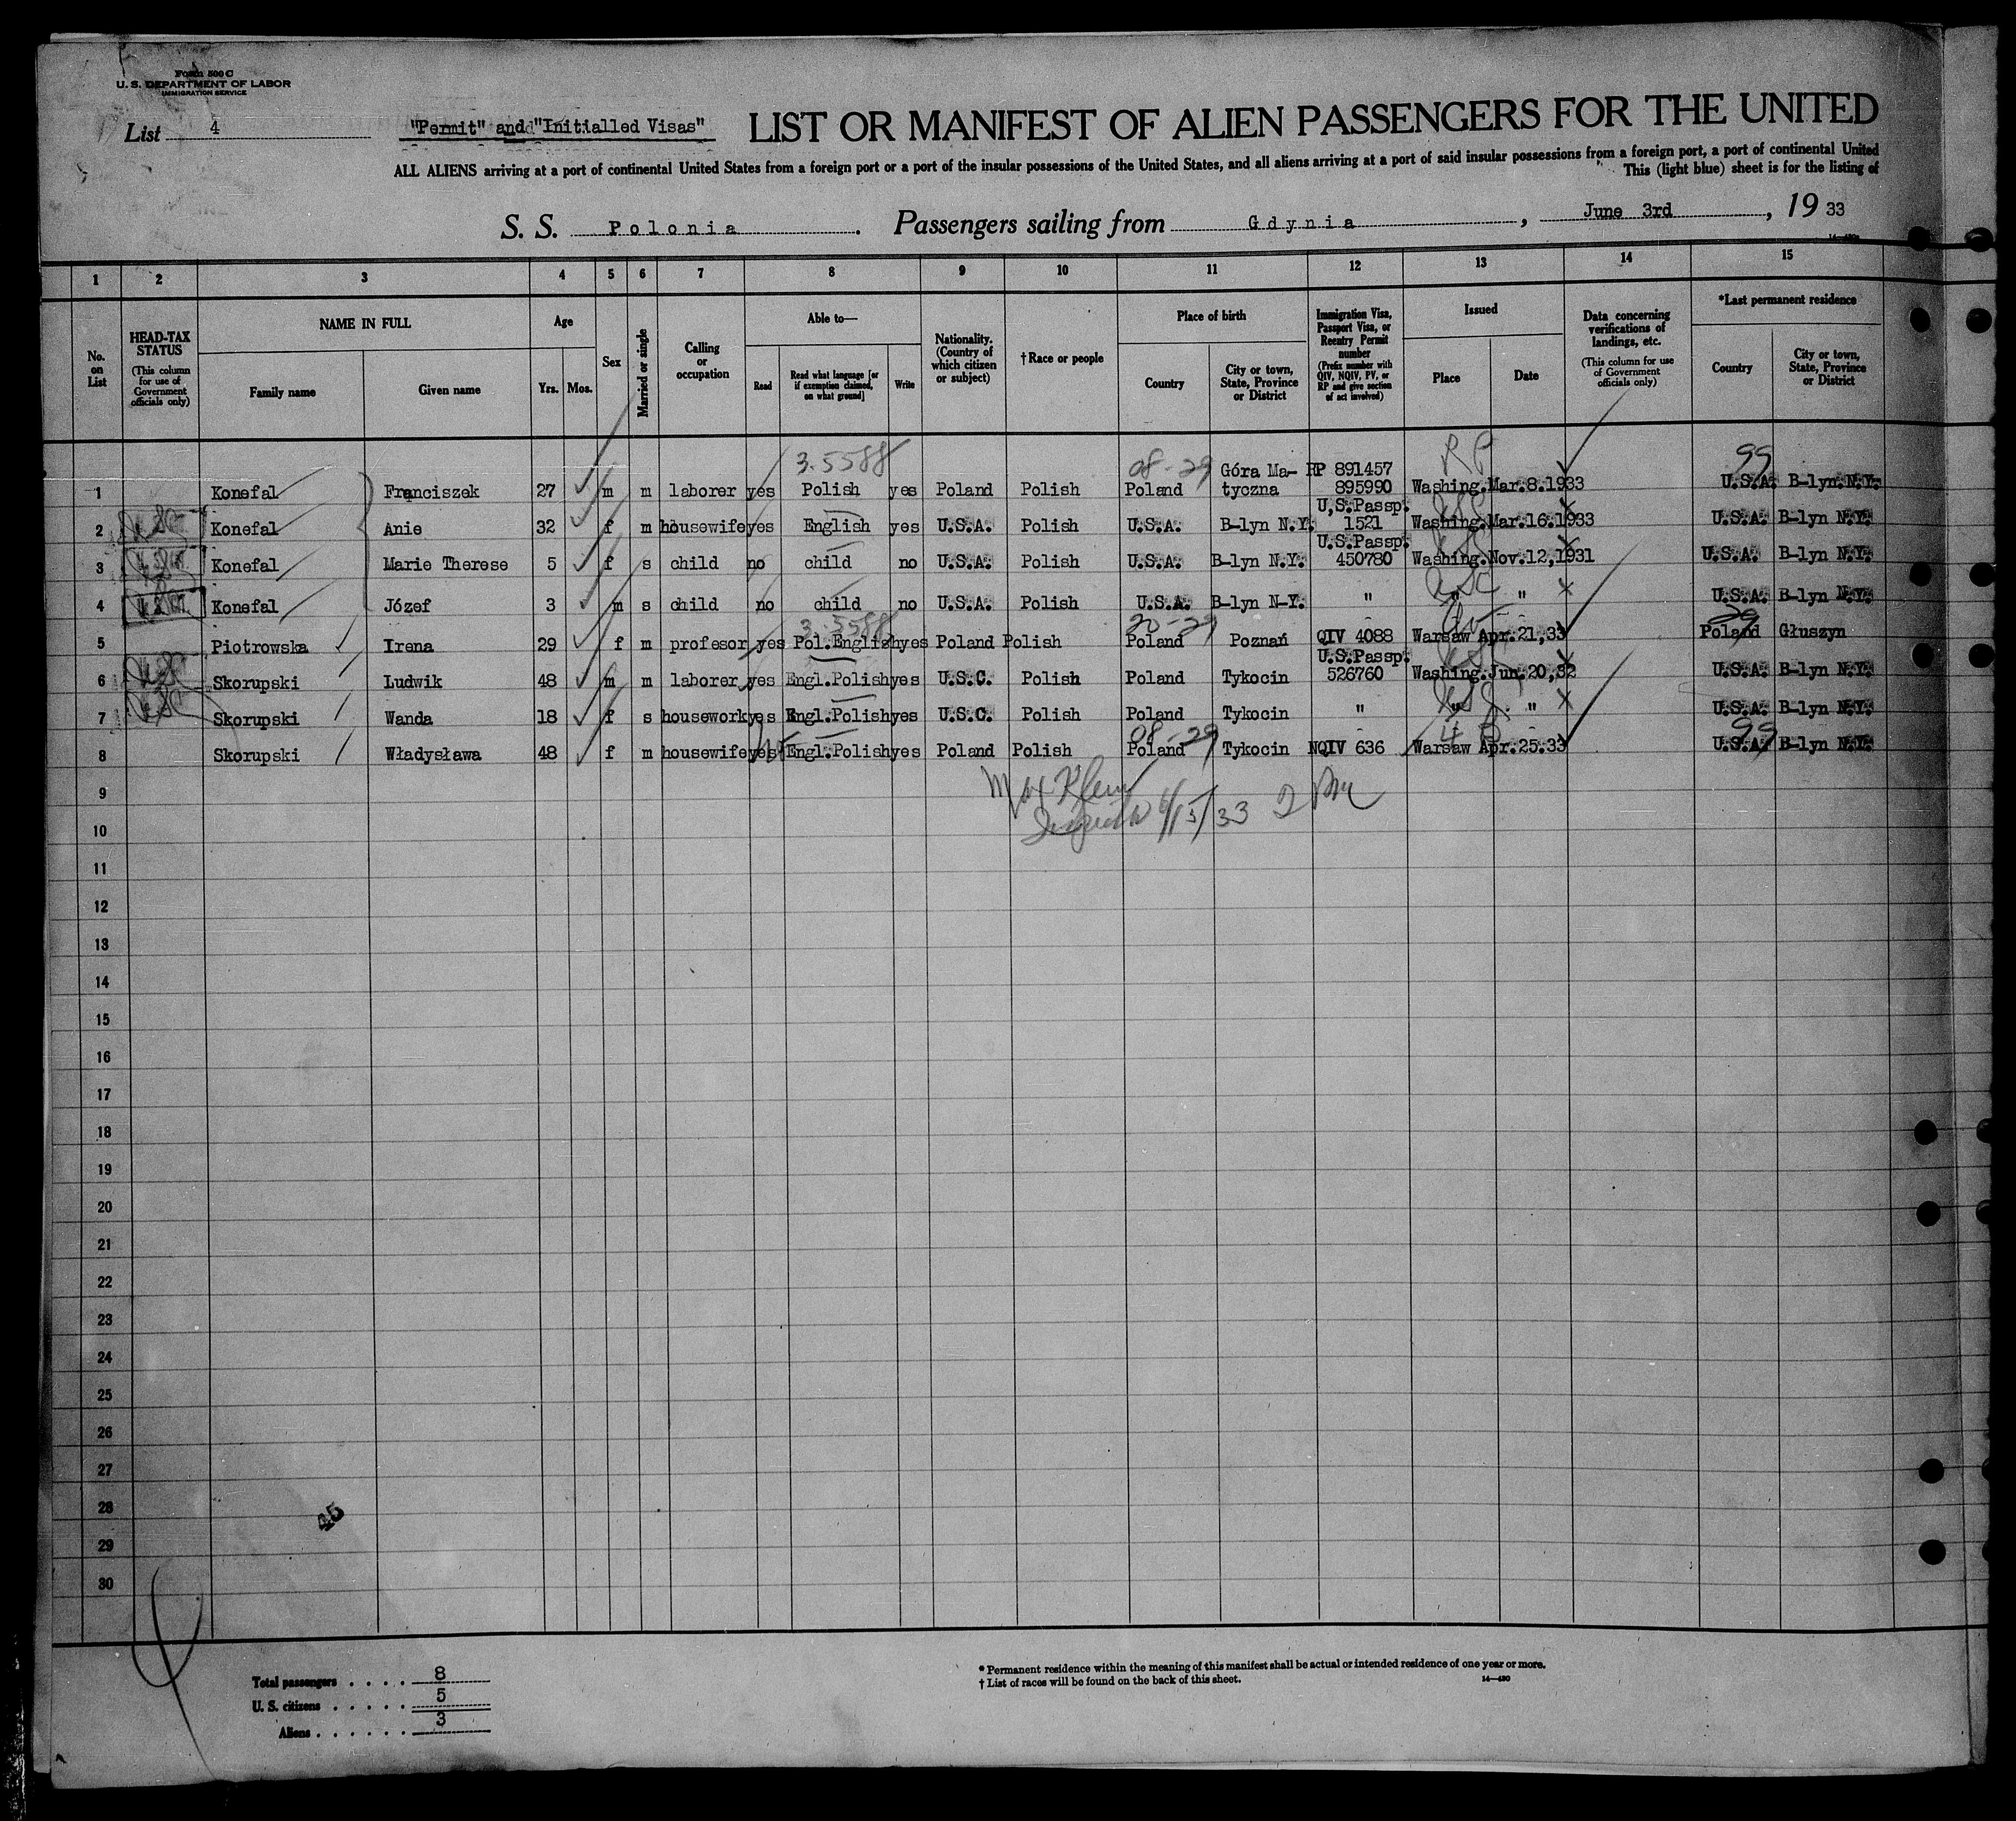 Form 500 C
U. S. DEPARTMENT OF LABOR
IMMIGRATION SERVICE
List 4 "Permit" and "Initialled Visas" LIST OR MANIFEST OF ALIEN PASSENGERS FOR THE UNITED
ALL ALIENS arriving at a port of continental United States from a foreign port or a port of the insular possessions of the United States, and all aliens arriving at a port of said insular possessions from a foreign port, a port of continental United
This (light blue) sheet is for the listing of
S. S. Polonia. Passengers sailing from Gdynia, June 3rd, 19 33
1 2 3 4 5 6 7 8 9 10 11 12 13 14 15
No. on List
HEAD-TAX STATUS
(This column for use of Government officials only)
NAME IN FULL
Family name Given name
Age
Yrs. Mos.
Sex
Married or single
Calling or occupation
Able to—
Read Read what language [or if exemption claimed, on what ground] Write
Nationality. (Country of which citizen or subject)
† Race or people
Place of birth
Country City or town, State, Province or District
Immigration Visa, Passport Visa, or Reentry Permit number
(Prefix number with QIV, NQIV, PV, or RP and give section of act involved)
Issued
Place Date
Data concerning verifications of landings, etc.
(This column for use of Government officials only)
*Last permanent residence
Country City or town, State, Province or District
3.5588 08-29 Góra Ma- RP 891457 RP 99
1 Konefal Franciszek 27 m m laborer yes Polish yes Poland Polish Poland tyczna 895990 Washing. Mar.8.1933 U.S.A. B-lyn.N.Y.
U.S.Passp.
2 Konefal Anie 32 f m housewife yes English yes U.S.A. Polish U.S.A. B-lyn N.Y. 1521 Washing. Mar.16.1933 U.S.A. B-lyn N.Y.
U.S.Passp.
3 Konefal Marie Therese 5 f s child no child no U.S.A. Polish U.S.A. B-lyn N.Y. 450780 Washing. Nov.12,1931 U.S.A. B-lyn N.Y.
4 Konefal Józef 3 m s child no child no U.S.A. Polish U.S.A. B-lyn N-Y. " " " U.S.A. B-lyn N.Y.
3.5588 20-29 29
5 Piotrowska Irena 29 f m profesor yes Pol.English yes Poland Polish Poland Poznań QIV 4088 Warsaw Apr.21,33 Poland Głuszyn
U.S.Passp.
6 Skorupski Ludwik 48 m m laborer yes Engl.Polish yes U.S.C. Polish Poland Tykocin 526760 Washing. Jun.20,32 U.S.A. B-lyn N.Y.
7 Skorupski Wanda 18 f s housework yes Engl.Polish yes U.S.C. Polish Poland Tykocin " " " U.S.A. B-lyn N.Y.
08-29 99
8 Skorupski Władysława 48 f m housewife yes Engl.Polish yes Poland Polish Poland Tykocin NQIV 636 Warsaw Apr.25.33 U.S.A. B-lyn N.Y.
9 Max Klein
10 6/15/33 2 PM
11
12
13
14
15
16
17
18
19
20
21
22
23
24
25
26
27
28 45
29
30
Total passengers . . . . 8
U. S. citizens . . . . . 5
Aliens . . . . . . 3
* Permanent residence within the meaning of this manifest shall be actual or intended residence of one year or more.
† List of races will be found on the back of this sheet. 14—430